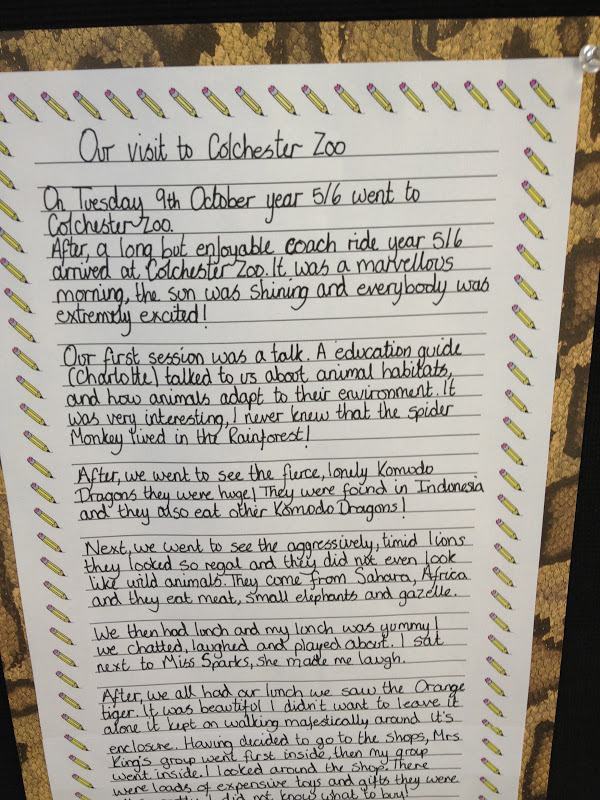 Our visit to Colchester Zoo
On Tuesday 9th October year 5/6 went to
Colchester Zoo.
After, a long but enjoyable coach ride year 5/6
arrived at Colchester Zoo. It was a marvellous
morning, the sun was shining and everybody was
extremely excited!
Our first session was a talk. A education guide
(Charlotte) talked to us about animal habitats,
and how animals adapt to their environment. It
was very interesting, I never knew that the spider
Monkey lived in the Rainforest!
After, we went to see the fierce, lonely Komodo
Dragons they were huge! They were found in Indonesia
and they also eat other Komodo Dragons!
Next, we went to see the aggressively, timid lions
they looked so regal and they did not even look
like wild animals. They come from Sahara, Africa
and they eat meat, small elephants and gazelle.
We then had lunch and my lunch was yummy!
we chatted, laughed and played about. I sat
next to Miss Sparks, she made me laugh.
After, we all had our lunch we saw the Orange
tiger. It was beautiful I didn't want to leave it
alone it kept on walking majestically around it's
enclosure. Having decided to go to the shops, Mrs
King's group went first inside, then my group
went inside. I looked around the shop. There
were loads of expensive toys and gifts they were
I did not know what to buy!